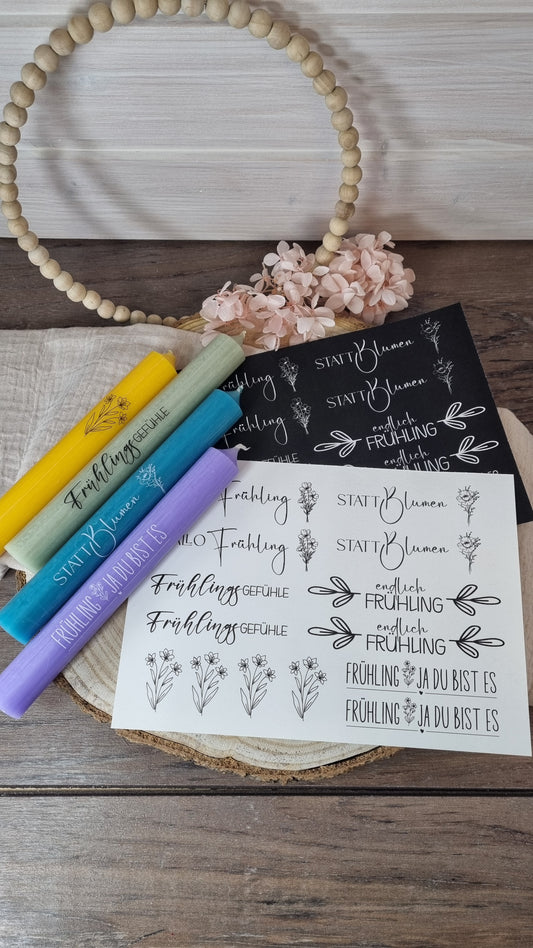 Frühling
STATT Blumen
STATT Blumen
endlich
FRÜHLING
Frühlings GEFÜHLE
STATT Blumen
FRÜHLING JA DU BIST ES
Frühling
STATT Blumen
Frühling
STATT Blumen
Frühlings GEFÜHLE
endlich
FRÜHLING
Frühlings GEFÜHLE
endlich
FRÜHLING
FRÜHLING JA DU BIST ES
FRÜHLING JA DU BIST ES